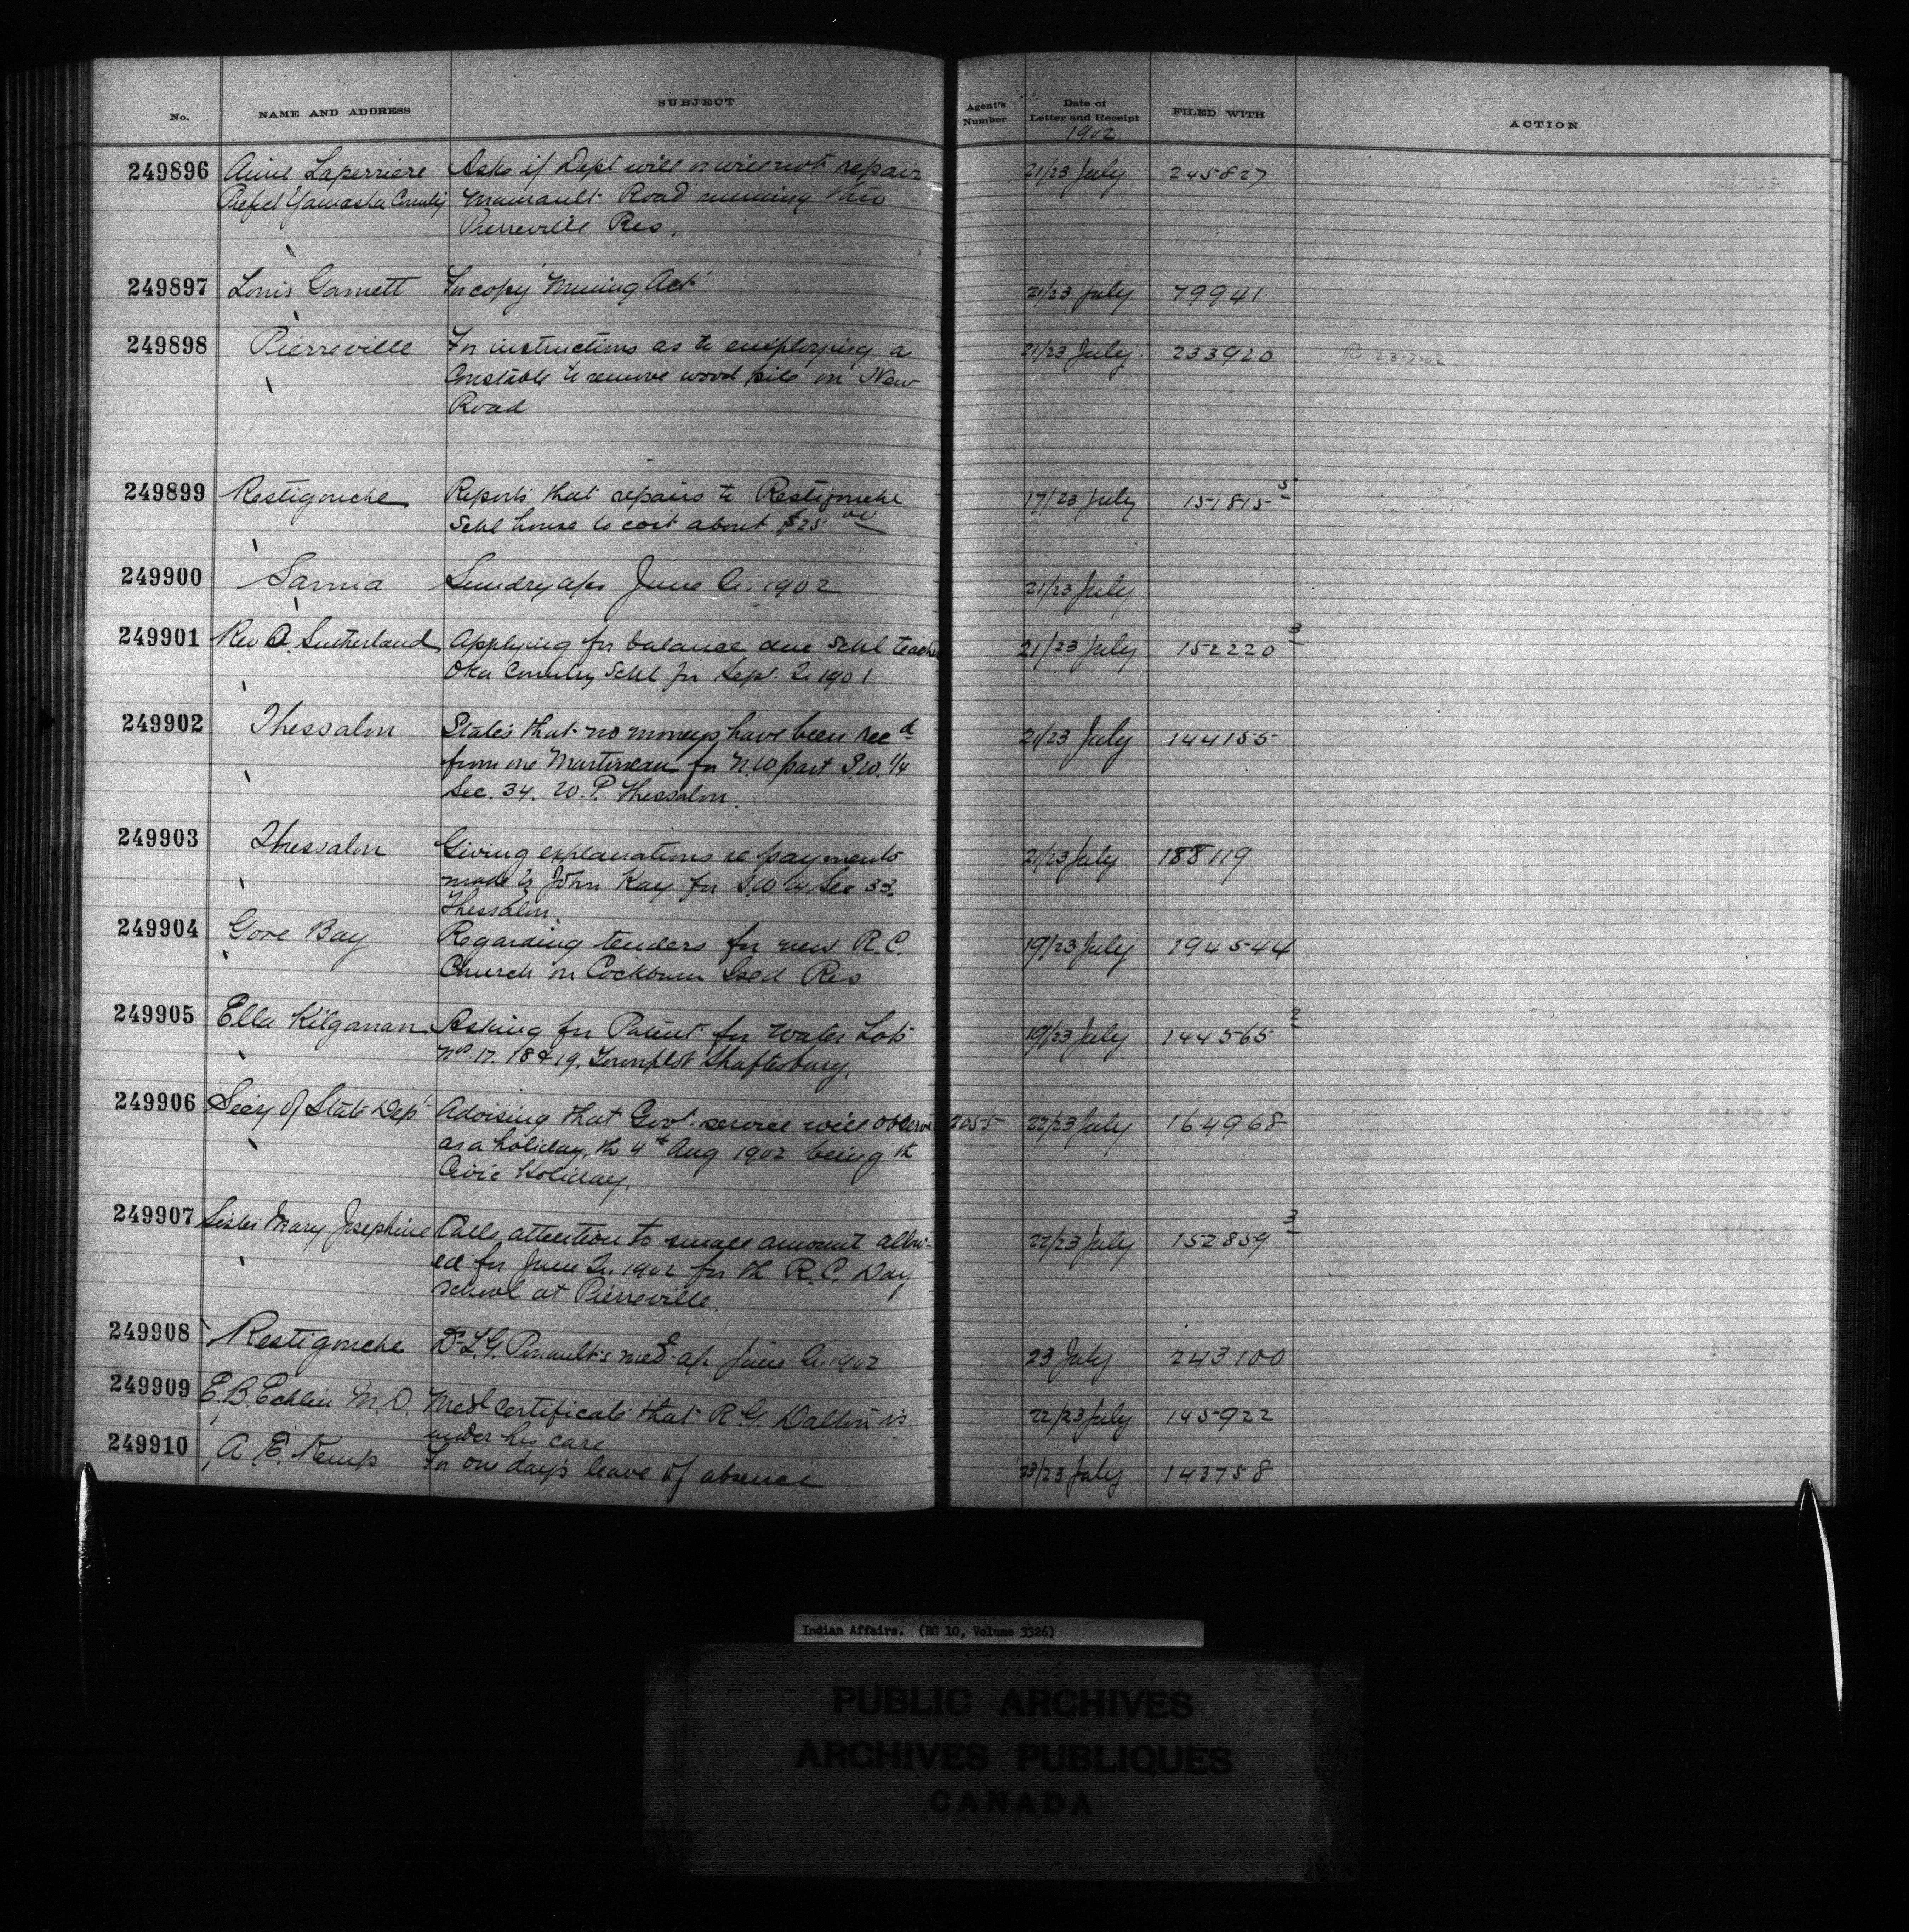 No. NAME AND ADDRESS SUBJECT Agent's Number Date of Letter and Receipt FILED WITH ACTION
1902
249896 Aimé Laperriere Asks if Dept will or will not repair 21/23 July 245827
Prefet Yamaska County Road running thro
Pierreville Res.
249897 Louis Garnett For copy Mining Act 21/23 July 79941
249898 Pierreville For instructions as to employing a 21/23 July. 233920 R 23-7-02
Constable to remove wood pile on New
Road
249899 Restigouche Reports that repairs to Restigouche 17/23 July 151815-5
Schl house to cost about $25 00
249900 Sarnia Sundry a/cs June Qr. 1902 21/23 July
249901 Rev A. Sutherland Applying for balance due Schl teacher 21/23 July 152220-3
Oka Country Schl for Sep. Qr 1901
249902 Thessalon States that no moneys have been recd 21/23 July 144155
from one Martineau for N.W part S.W. 1/4
Sec. 34. W. P. Thessalon.
249903 Thessalon Giving explanations re payments 21/23 July 188119
made by John Kay for S.W. 1/4 Sec 33.
Thessalon.
249904 Gore Bay Regarding tenders for new R.C. 19/23 July 194544
Church on Cockburn Isld Res
249905 Ella Kilganan Asking for Patent for Water Lots 19/23 July 144565-2
Nos. 17. 18 & 19, Townplot Shaftesbury.
249906 Secy of State Dept Advising that Govt. service will observe 2055 22/23 July 164968
as a holiday, th 4th Aug 1902 being th
Civic Holiday.
249907 Sister Mary Josephine Calls attention to small amount allow- 22/23 July 152859-3
ed for June Qr. 1902 for th R.C. Day
School at Pierreville.
249908 Restigouche Dr L.G. Pinault's med a/c June Qr. 1902 23 July 243100
249909 E. B. Echlin M.D. Medl certificate that R.G. Dalton is 22/23 July 145922
under his care
249910 A. E. Kemp For one day's leave of absence 23/23 July 143758
Indian Affairs. (RG 10, Volume 3326)
PUBLIC ARCHIVES
ARCHIVES PUBLIQUES
CANADA